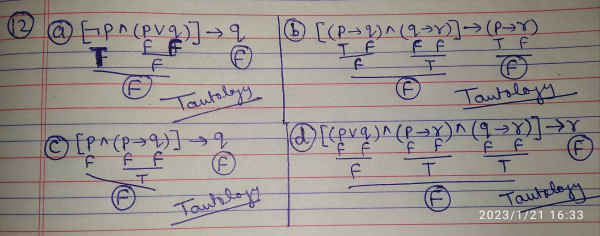 12 a [¬p ∧ (p ∨ q)] → q
T F F F
F
F
Tautology
b [(p → q) ∧ (q → r)] → (p → r)
T F F F T F
F T F
F
Tautology
c [p ∧ (p → q)] → q
F F F F
T
F
Tautology
d [(p ∨ q) ∧ (p → r) ∧ (q → r)] → r
F F F F F F F
F T T
F
Tautology
2023/1/21 16:33